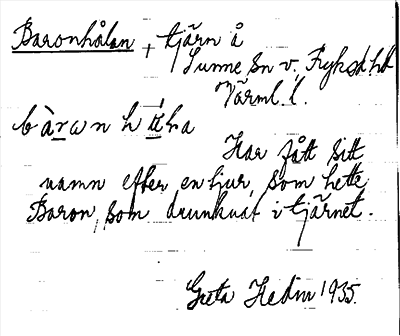 Baronhålan, tjärn å
Sunne sn v. Fryksd. hd
Värml. l.
Har fått sitt
namn efter en tjur, som hette
Baron, som drunknat i tjärnet.
Greta Hedin 1935.